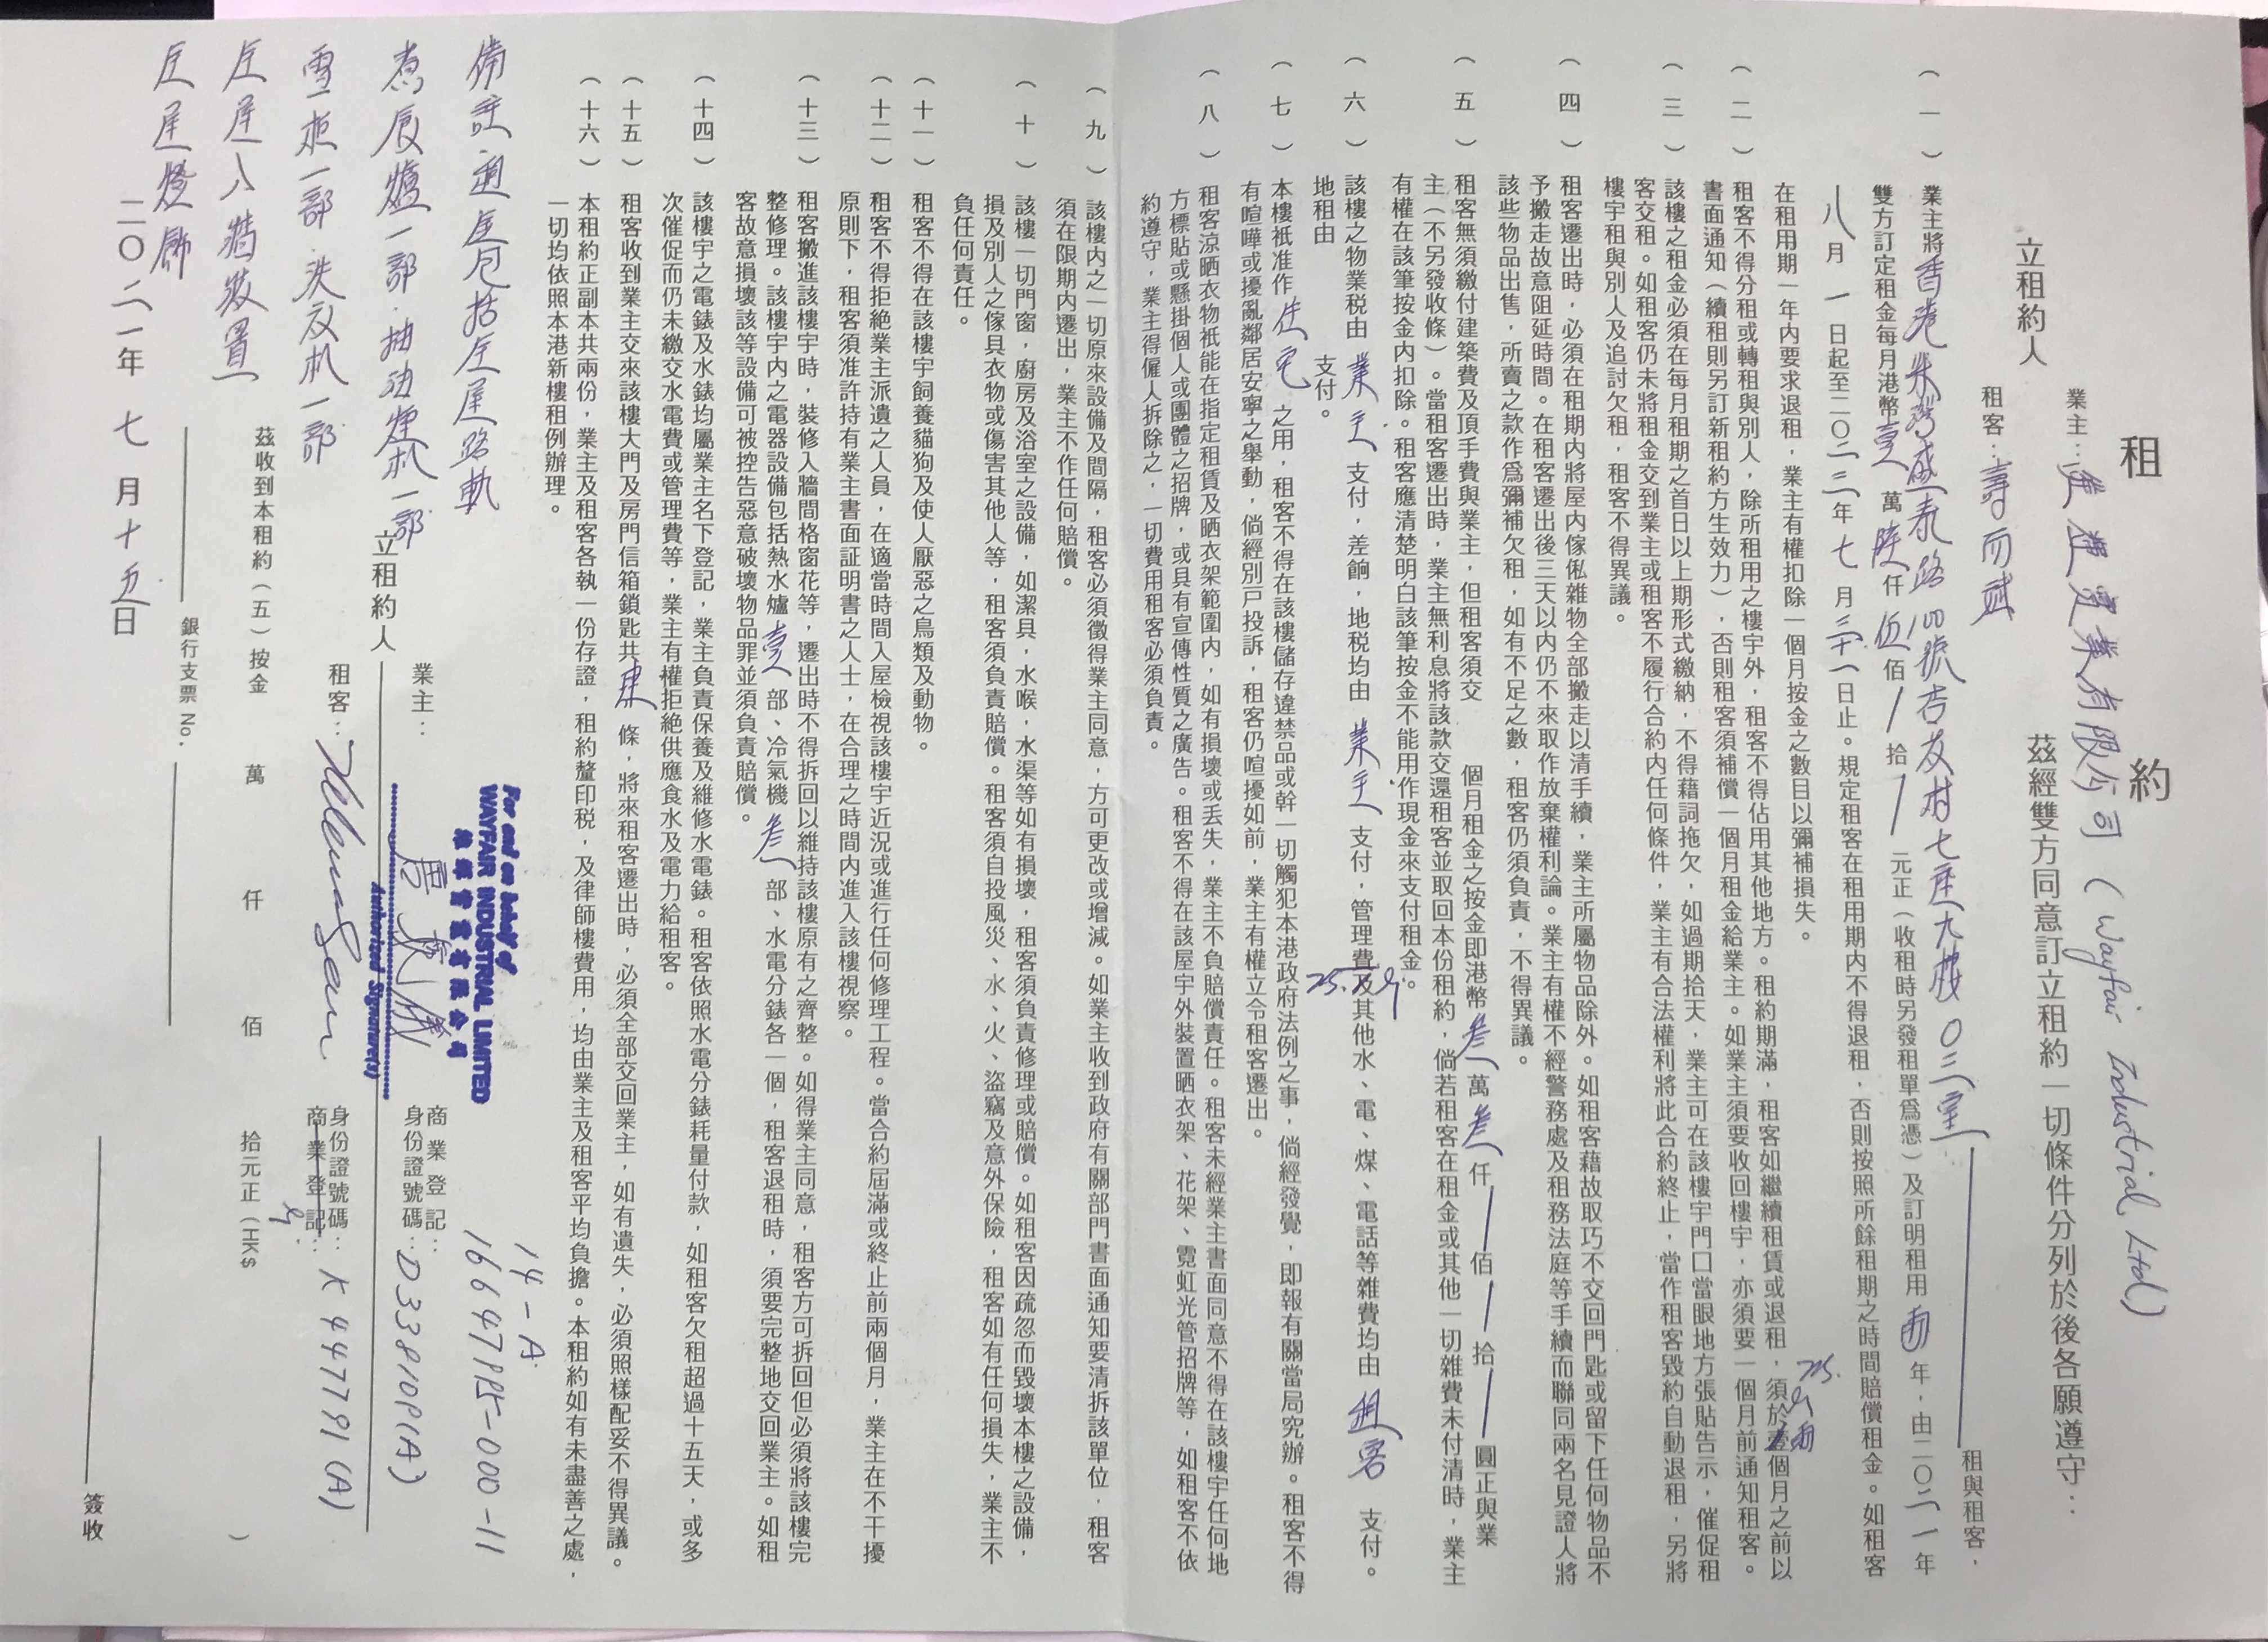 租約
立租約人
業主：進選實業有限公司 (Wayfair Industrial Ltd)
租客：壽而斌
茲經雙方同意訂立租約一切條件分列於後各願遵守：
（一）業主將香港柴灣盛泰路100號杏花村七座九樓03室 租與租客，
雙方訂定租金每月港幣壹萬陸仟伍佰/拾/元正（收租時另發租單為憑）及訂明租用兩年，由二〇二一年
八月一日起至二〇二三年七月三十一日止。規定租客在租用期內不得退租，否則按照所餘租期之時間賠償租金。如租客
在租用期一年內要求退租，業主有權扣除一個月按金之數目以彌補損失。
（二）租客不得分租或轉租與別人，除所租用之樓宇外，租客不得佔用其他地方。租約期滿，租客如繼續租賃或退租，須於兩個月之前以
書面通知（續租則另訂新租約方生效力），否則租客須補償一個月租金給業主。如業主須要收回樓宇，亦須要一個月前通知租客。
（三）該樓之租金必須在每月租期之首日以上期形式繳納，不得藉詞拖欠，如過期拾天，業主可在該樓宇門口當眼地方張貼告示，催促租
客交租。如租客仍未將租金交到業主或租客不履行合約內任何條件，業主有合法權利將此合約終止，當作租客毀約自動退租，另將
樓宇租與別人及追討欠租，租客不得異議。
（四）租客遷出時，必須在租期內將屋內傢俬雜物全部搬走以清手續，業主所屬物品除外。如租客藉故取巧不交回門匙或留下任何物品不
予搬走故意阻延時間。在租客遷出後三天以內仍不來取作放棄權利論。業主有權不經警務處及租務法庭等手續而聯同兩名見證人將
該些物品出售，所賣之款作為彌補欠租，如有不足之數，租客仍須負責，不得異議。
（五）租客無須繳付建築費及頂手費與業主，但租客須交 個月租金之按金即港幣叁萬叁仟/佰/拾/圓正與業
主（不另發收條）。當租客遷出時，業主無利息將該款交還租客並取回本份租約，倘若租客在租金或其他一切雜費未付清時，業主
有權在該筆按金內扣除。租客應清楚明白該筆按金不能用作現金來支付租金。
（六）該樓之物業稅由業主支付，差餉，地稅均由業主支付，管理費及其他水、電、煤、電話等雜費均由租客支付。
地租由 支付。
（七）本樓祇准作住宅之用，租客不得在該樓儲存違禁品或幹一切觸犯本港政府法例之事，倘經發覺，即報有關當局究辦。租客不得
有喧嘩或擾亂鄰居安寧之舉動，倘經別戶投訴，租客仍喧擾如前，業主有權立令租客遷出。
（八）租客涼晒衣物祇能在指定租賃及晒衣架範圍內，如有損壞或丟失，業主不負賠償責任。租客未經業主書面同意不得在該樓宇任何地
方標貼或懸掛個人或團體之招牌，或具有宣傳性質之廣告。租客不得在該屋宇外裝置晒衣架、花架、霓虹光管招牌等，如租客不依
約遵守，業主得僱人拆除之，一切費用租客必須負責。
（九）該樓內之一切原來設備及間隔，租客必須徵得業主同意，方可更改或增減。如業主收到政府有關部門書面通知要清拆該單位，租客
須在限期內遷出，業主不作任何賠償。
（十）該樓一切門窗，廚房及浴室之設備，如潔具，水喉，水渠等如有損壞，租客須負責修理或賠償。如租客因疏忽而毀壞本樓之設備，
損及別人之傢具衣物或傷害其他人等，租客須負責賠償。租客須自投風災、水、火、盜竊及意外保險，租客如有任何損失，業主不
負任何責任。
（十一）租客不得在該樓宇飼養貓狗及使人厭惡之鳥類及動物。
（十二）租客不得拒絕業主派遣之人員，在適當時間入屋檢視該樓宇近況或進行任何修理工程。當合約屆滿或終止前兩個月，業主在不干擾
原則下，租客須准許持有業主書面証明書之人士，在合理之時間內進入該樓視察。
（十三）租客搬進該樓宇時，裝修入牆間格窗花等，遷出時不得拆回以維持該樓原有之齊整。如得業主同意，租客方可拆回但必須將該樓完
整修理。該樓宇內之電器設備包括熱水爐壹部、冷氣機叁部、水電分錶各一個，租客退租時，須要完整地交回業主。如租
客故意損壞該等設備可被控告惡意破壞物品罪並須負責賠償。
（十四）該樓宇之電錶及水錶均屬業主名下登記，業主負責保養及維修水電錶。租客依照水電分錶耗量付款，如租客欠租超過十五天，或多
次催促而仍未繳交水電費或管理費等，業主有權拒絕供應食水及電力給租客。
（十五）租客收到業主交來該樓大門及房門信箱鎖匙共 條，將來租客遷出時，必須全部交回業主，如有遺失，必須照樣配妥不得異議。
（十六）本租約正副本共兩份，業主及租客各執一份存證，租約釐印稅，及律師樓費用，均由業主及租客平均負擔。本租約如有未盡善之處，
一切均依照本港新樓租例辦理。
備註：連屋包括全屋路軌
煮食爐一部．抽油煙机一部
雪柜一部．洗衣机一部
全屋入牆裝置
全屋燈飾
立租約人
業主：
For and on behalf of
WAYFAIR INDUSTRIAL LIMITED
Authorized Signature(s)
商業登記：16647985-000-11
14-A
身份證號碼：D338109(A)
租客：
身份證號碼：K447791(A)
商業登記：
茲收到本租約（五）按金 萬 仟 佰 拾元正（HK$ ）
銀行支票 No.
簽收
二〇二一年七月十五日